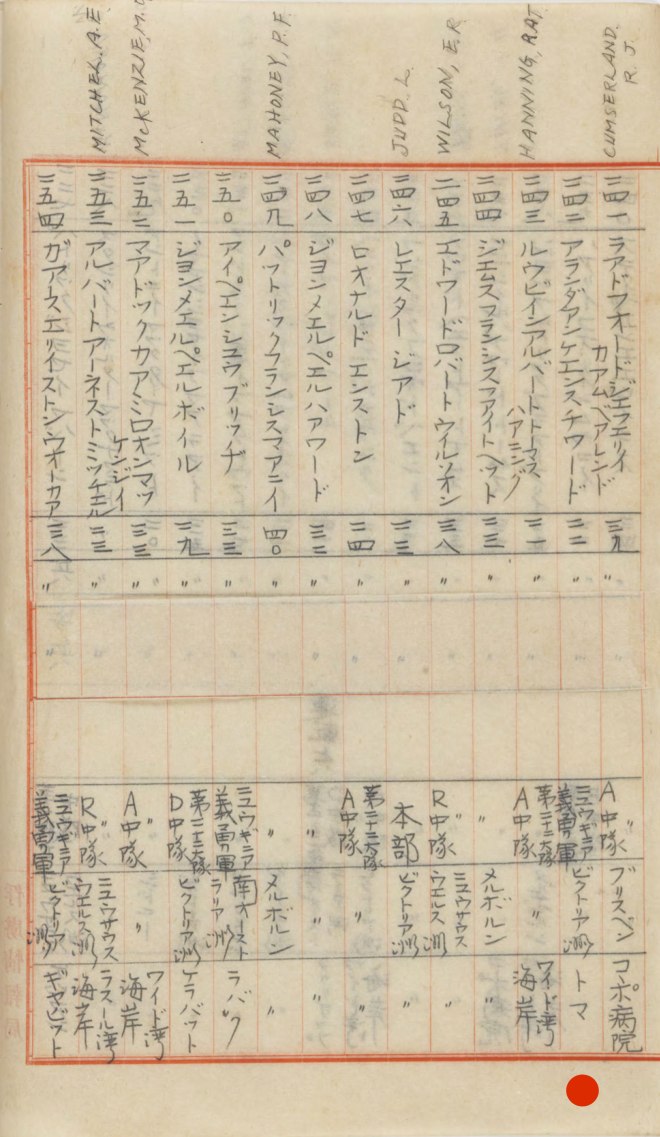 CUMSERLAND. R. J.
二四一 ラアドフオードジエフエリイ カアムベアレンド 三九 〃 A中隊 〃 ブリスベン コポ病院
二四二 アランダアンケエンスチワード 二二 〃 ニュウギニア義勇軍 ビクトリア洲 トマ
HANNING, R.A.T.
二四三 ルウビインアルバートトーマス ハアニング 二一 〃 第二十二大隊 A中隊 〃 ワイド湾海岸
二四四 ジエムスフランシスフアイトヘット 二三 〃 〃 メルボルン 〃
WILSON, E.R
二四五 エドワードロバートウイルソオン 三八 〃 R中隊 ニュウサウスウエルス洲 〃
JUDD. L.
二四六 レエスター ジアド 二三 〃 本部 ビクトリア洲 〃
二四七 ロオナルド エンストン 二四 〃 第二十二大隊 A中隊 〃 〃
二四八 ジヨンメエルペエルハアワード 三二 〃 〃 〃 〃
MAHONEY, P.F.
二四九 パットリックフランシスマアニイ 四〇 〃 〃 メルボルン 〃
二五〇 アイペエンシュウブリッヂ 三三 〃 ニュウギニア義勇軍 南オーストラリア洲 ラバウ
二五一 ジヨンメエルペエルボイル 二九 〃 第二十二大隊 D中隊 ビクトリア洲 ケラバット
McKENZIE, M.
二五二 マアドックカアミロオンマッ ケンジイ 三三 〃 A中隊 〃 〃 ワイド湾海岸
MITCHEL. A.E.
二五三 アルバートアーネストミッチエル 二三 〃 R中隊 〃 ニュウサウスウエルス洲 ラスール湾海岸
二五四 ガアスエリイストンウオーカア 三八 〃 ニュウギニア義勇軍 ビクトリア洲 ギヤビット